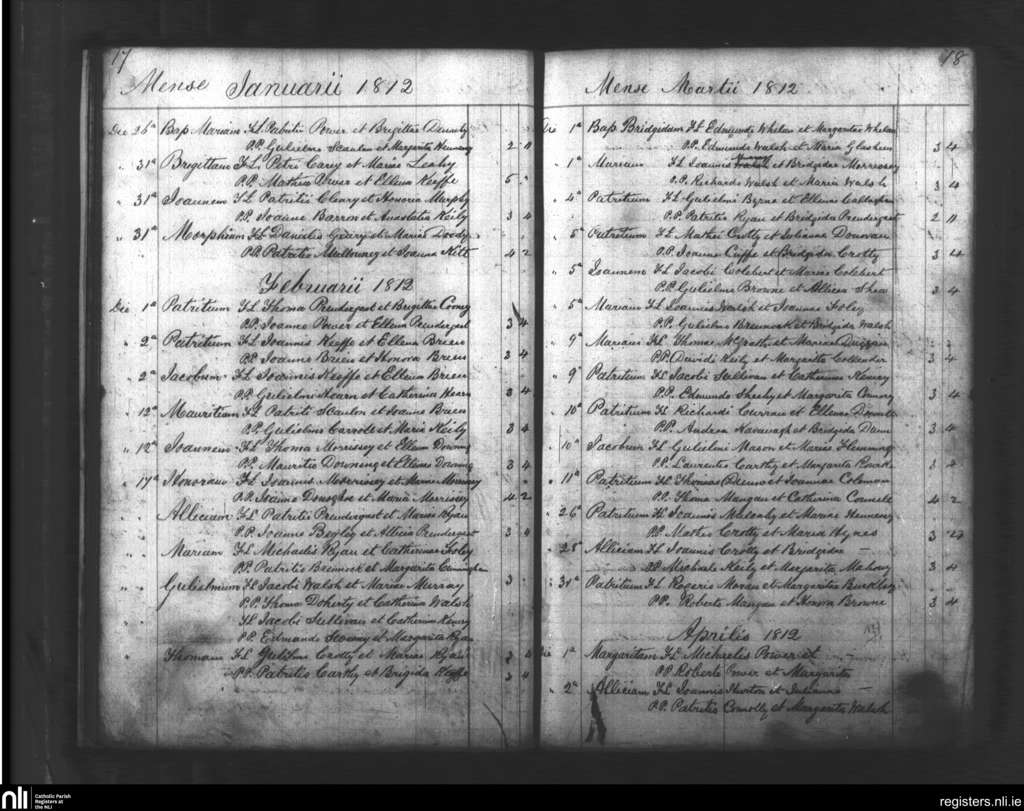 17
Mense Januarii 1812
Die 26ª Bap Mariam FL Patritii Power et Brigittae
P.P. Gulielmo Scanlan et Margarita Hennessy 2
" 31ª Brigittam FL Petri Carey et Mariae Leahy
P.P. Matheo Power et Ellena Keeffe 5
" 31ª Joannem FL Patritii Cleary et Honoria Murphy
P.P. Joanne Barron et Anastatia Keily 3 4
" 31ª FL Danielis Geary et Mariae
P.P. Patritio Mullowney et Joanna 4 2
Februarii 1812
Die 1ª Patritium FL Thoma Prendergast et Brigittae Cooney
P.P. Joanne Power et Ellena Prendergast 3 4
" 2ª Patritium FL Joannis Keeffe et Ellena Brien
P.P. Joanne Brien et Honora Brien 3 4
" 2ª Jacobum FL Joannis Keeffe et Ellena Brien
P.P. Gulielmo Hearn et Catherina Hearn 3 4
" 12ª Mauritium FL Patritii Scanlon et Joanna Brien
P.P. Gulielmo Carrole et Maria Keily 3 4
" 12ª Joannem FL Thoma Morrissey et Ellena Downing
P.P. Mauritio Downing et Ellena Downing 3 4
" 17ª Honoram FL Joannis Morrissey et Mariae Morrissey
P.P. Joanne Donoghoe et Maria Morrissey 4 2
" " Alliciam FL Patritii Prendergast et Mariae Ryan
P.P. Joanne Begley et Allicia Prendergast 3 4
" " Mariam FL Michaelis Ryan et Catherinae Foley
P.P. Patritio Bresnock et Margarita Cunningham
" " Gulielmum FL Jacobi Walsh et Mariae Murray 3
P.P. Thoma Doherty et Catherina Walsh
FL Jacobi Sullivan et Catherina Kenry
P.P. Edmundo et Margarita Ryan
" " Thomam FL Gulielmi Crotty et Mariae Ryan 3 4
P.P. Patritio Carthy et Brigida Keeffe 3 4
18
Mense Martii 1812
Die 1ª Bap Bridgidam FL Edmundi Whelan et Margaritae Whelan
P.P. Edmundo Walsh et Maria Glasheen 3 4
" 1ª Mariam FL Joannis et Bridgidae Morrissey
P.P. Richardo Walsh et Maria Walsh 3 4
" 4ª Patritium FL Gulielmi Byrne et Ellenae Callaghan
P.P. Patritio Ryan et Bridgida Prendergast 2 11
" 5ª Patritium FL Mathei Crotty et Donovan
P.P. Joanne Cuffe et Bridgida Crotty 3 4
" 5ª Joannem FL Jacobi Colebert et Mariae Colebert
P.P. Gulielmo Browne et Allicia Shea 3 4
" 5ª Mariam FL Joannis Walsh et Joannae Foley
P.P. Gulielmo Bresnock et Bridgida Walsh
" 9ª Mariam FL Thoma McGrath et Mariae Duggan
P.P. Davidi Keily et Margarita Collender 3 4
" 9ª Patritium FL Jacobi Sullivan et Catherinae Kenry
P.P. Edmundo Sheehy et Margarita Connory 3 4
" 10ª Patritium FL Richardi Curran et Ellenae
P.P. Andrea Kavanagh et Bridgida Dunn 3 4
" 10ª Jacobum FL Gulielmi Mason et Mariae Flemming
P.P. Laurentio Carthy et Margarita Rourke 3 4
" 11ª Patritium FL Thomas et Joannae Coleman
P.P. Thoma Mangan et Catherina Connell 4 2
" 26ª Patritium FL Joannis Mulcahy et Mariae Hennessy
P.P. Matheo Crotty et Maria Hynes 3
" 28ª Alliciam FL Joannis Crotty et Bridgidae —
P.P. Michaele Keily et Margarita Mahony 3 4
" 31ª Patritium FL Rogeri Moran et Margaritae Buckley
P.P. Roberto Mangan et Honora Browne 3 4
Aprilis 1812
Die 1ª Margaritam FL Michaelis Power et —
P.P. Roberto Power et Margarita
" 2ª Alliciam FL Joannis Norton et Julianae —
P.P. Patritio Connolly et Margarita Walsh
nli
Catholic Parish
Registers at
the NLI
registers.nli.ie